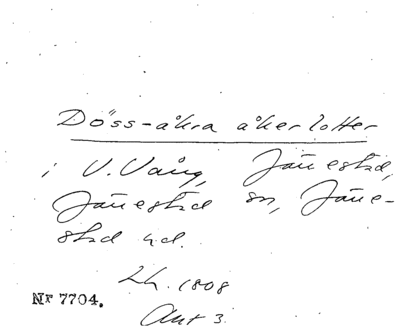 Döss-åkra åkerlotter
i V. Vång, Järrestad,
Järrestad sn, Järre-
stad hd.
Lh. 1808
Nr 7704.
Akt 3.